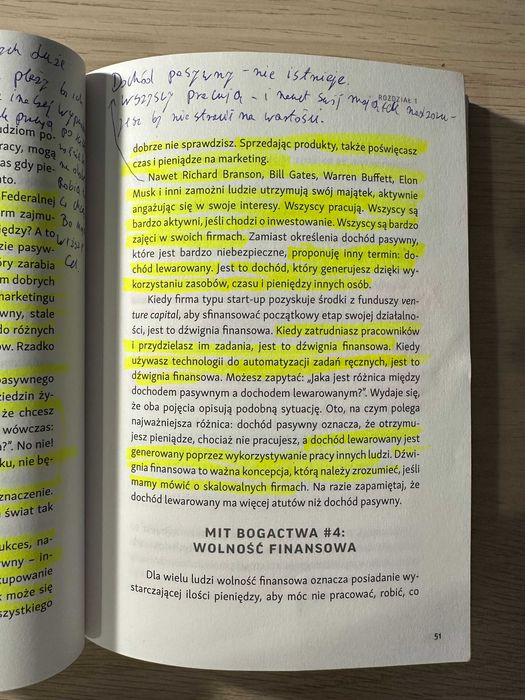 duże
udziom po-
racy, mogą
as gdy pie-
nto.
Federalnej
rm zajmu-
iędzy? A to
zie pasyw-
óry zarabia
m dobrych
marketingu
wny, stale
do różnych
ów. Rzadko
pasywnego
iedzin ży-
że chcesz
wówczas:
?". No nie!
ku, nie bę-
znaczenie.
świat tak
ukces, na-
wny – in-
kupowanie
k może się
szystkiego
Dochód pasywny - nie istnieje.
ROZDZIAŁ 1
Wszyscy pracują - i nawet swój majątek nadzoru-
ją by nie stracił na wartości.
dobrze nie sprawdzisz. Sprzedając produkty, także poświęcasz
czas i pieniądze na marketing.
Nawet Richard Branson, Bill Gates, Warren Buffett, Elon
Musk i inni zamożni ludzie utrzymują swój majątek, aktywnie
angażując się w swoje interesy. Wszyscy pracują. Wszyscy są
bardzo aktywni, jeśli chodzi o inwestowanie. Wszyscy są bardzo
zajęci w swoich firmach. Zamiast określenia dochód pasywny,
które jest bardzo niebezpieczne, proponuję inny termin: do-
chód lewarowany. Jest to dochód, który generujesz dzięki wy-
korzystaniu zasobów, czasu i pieniędzy innych osób.
Kiedy firma typu start-up pozyskuje środki z funduszy ven-
ture capital, aby sfinansować początkowy etap swojej działalno-
ści, jest to dźwignia finansowa. Kiedy zatrudniasz pracowników
i przydzielasz im zadania, jest to dźwignia finansowa. Kiedy
używasz technologii do automatyzacji zadań ręcznych, jest to
dźwignia finansowa. Możesz zapytać: „Jaka jest różnica między
dochodem pasywnym a dochodem lewarowanym?". Wydaje się,
że oba pojęcia opisują podobną sytuację. Oto, na czym polega
najważniejsza różnica: dochód pasywny oznacza, że otrzymu-
jesz pieniądze, chociaż nie pracujesz, a dochód lewarowany jest
generowany poprzez wykorzystywanie pracy innych ludzi. Dźwi-
gnia finansowa to ważna koncepcja, którą należy zrozumieć, jeśli
mamy mówić o skalowalnych firmach. Na razie zapamiętaj, że
dochód lewarowany ma więcej atutów niż dochód pasywny.
MIT BOGACTWA #4:
WOLNOŚĆ FINANSOWA
Dla wielu ludzi wolność finansowa oznacza posiadanie wy-
starczającej ilości pieniędzy, aby móc nie pracować, robić, co
51